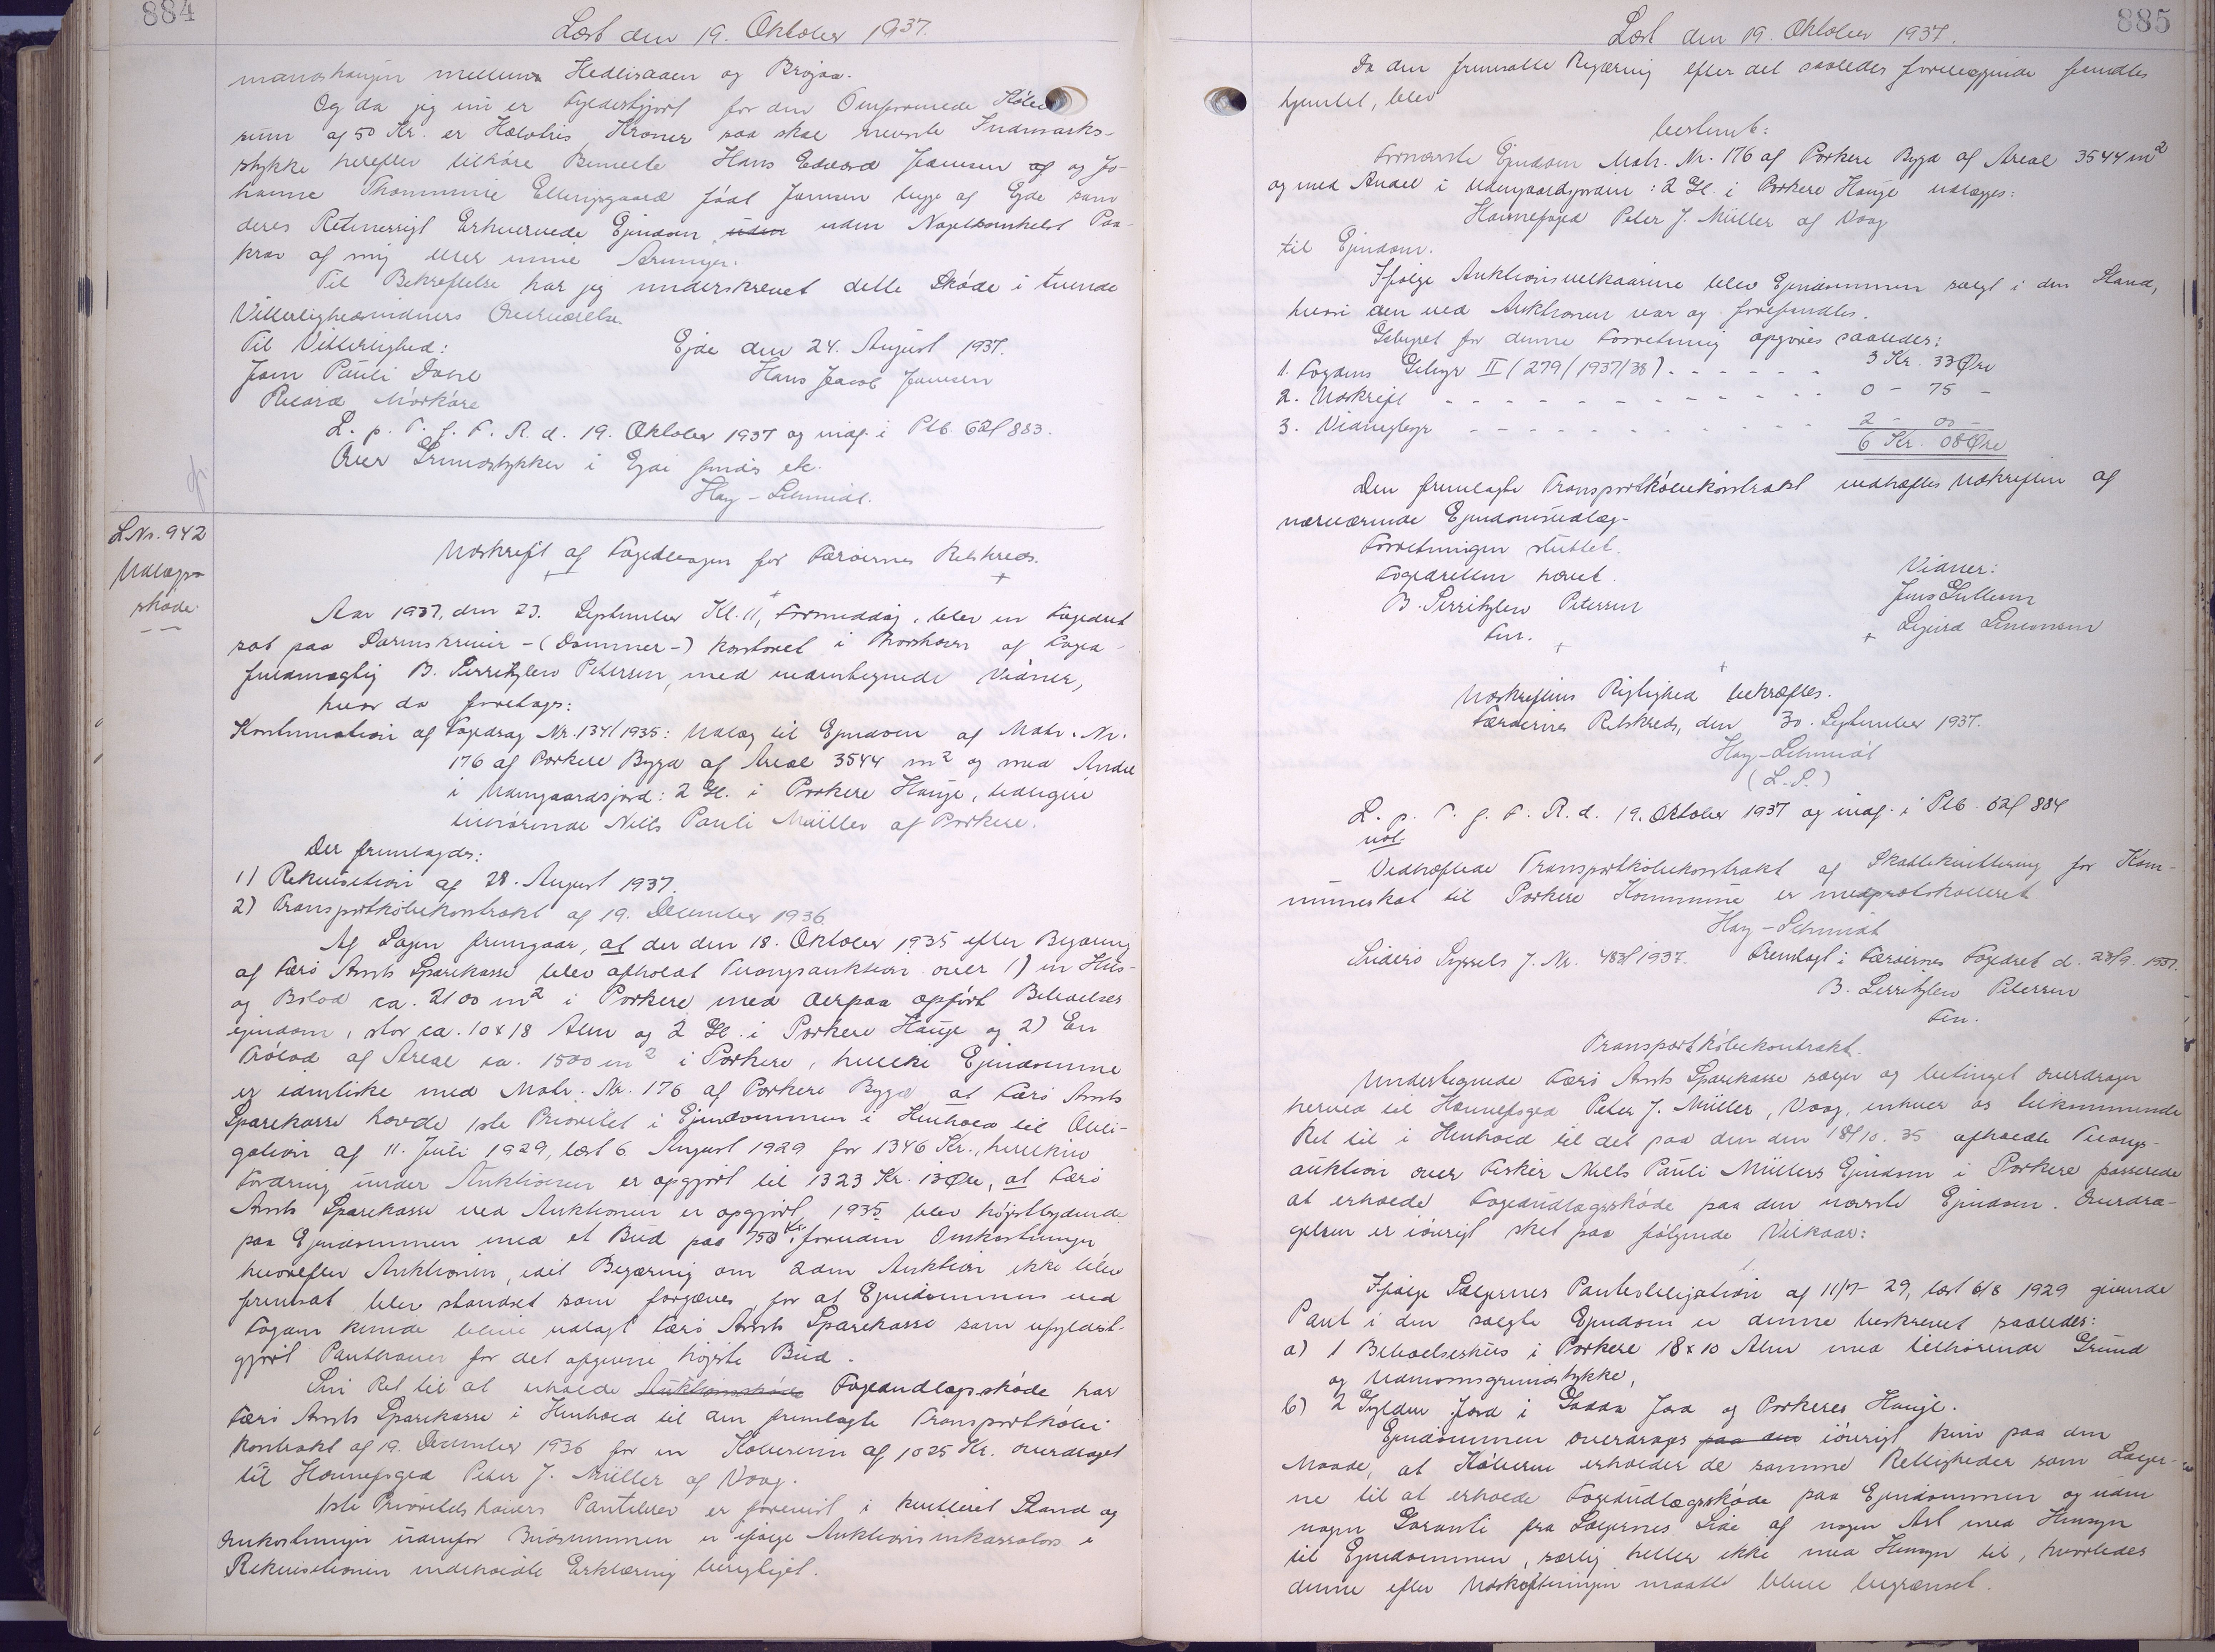 884
Læst den 19. Oktober 1937.
mandshaugen mellem Hedlisaaen og Brojaa.
Og da jeg nu er fyldestgjort for den Omformede Købe
sum af 50 Kr. er Halvtris Kroner saa skal nævnte Indmarks-
stykke herefter tilhøre Bemeldte Hans Edvard Joensen og og Jo-
hanne Thommine Ellingsgaard født Joensen begge af Ejde som
deres Retmessigt Erhvervede Ejendom uden uden Nogetsomhelst Paa-
krav af mig eller mine Arvinger.
Til Bekreftelse har jeg underskrevet dette Skøde i tvende
Vitterlighedsvidners Overværelse.
Til Vitterlighed:
Ejde den 24. August 1937.
Joen Pauli Dahl
Hans Jacob Joensen
Ricard Mørkøre
L. p. T. f. F. R. d. 19. Oktober 1937 og indf. i Ptb. 62f 883.
Over Grundstykker i Ejde findes etc.
Hay-Schmidt.
L Nr. 942
Udlægs-
skøde.
Udskrift af Fogedbogen for Færøernes Retskreds.
Aar 1937, den 23. September Kl. 11, Formiddag, blev en Fogedret
sat paa Sorenskriver-(Dommer-) kontoret i Thorshavn af Foged-
fuldmægtig B. Gerritzlew Petersen, med undertegnede Vidner,
hvor da foretoges:
Kontinuation af Fogedsag Nr. 134/1935: Udlæg til Ejendom af Matr. Nr.
176 af Porkere Bygd af Areal 3544 m2 og med Andel
i Udengaardsjord: 2 Gl. i Porkere Hauge, tidligere
tilhørende Niels Pauli Müller af Porkere.
Der fremlagdes:
1) Rekvisition af 28. August 1937.
2) Transportkøbekontrakt af 19. December 1936
Af Sagen fremgaar, at der den 18. Oktober 1935 efter Begæring
af Færø Amts Sparekasse blev afholdt Tvangsauktion over 1) en Hus-
og Bslod ca. 2100 m2 i Porkere med derpaa opført Beboelses
ejendom, stor ca. 10 x 18 Alen og 2 Gl. i Porkere Hauge og 2) En
Trølod af Areal ca. 1500 m2 i Porkere, hvilke Ejendomme
er identiske med Matr. Nr. 176 af Porkere Bygd, at Færø Amts
Sparekasse havde 1ste Prioritet i Ejendommen i Henhold til Obli-
gation af 11. Juli 1929, læst 6 August 1929 for 1346 Kr., hvilken
Fordring under Auktionen er opgjort til 1323 Kr. 13 Øre, at Færø
Amts Sparekasse ved Auktionen er opgjort 1935 blev højstbydende
paa Ejendommen med et Bud paa 750 Kr. foruden Omkostninger
hvorefter Auktionen, idet Begæring om 2den Auktion ikke blev
fremsat blev standset som forgæves for at Ejendommen ved
Fogden kunde blive udlagt Færø Amts Sparekasse som ufyldest-
gjort Panthaver for det opgivne højeste Bud.
Sin Ret til at erholde Auktionsskøde Fogedudlægsskøde har
Færø Amts Sparekasse i Henhold til den fremlagte Transportkøbe
kontrakt af 19. December 1936 for en Købesum af 1025 Kr. overdraget
til Havnefoged Peter J. Müller af Vaag.
1ste Prioritetshavers Pantebrev er forevist i kvitteret Stand og
Omkostninger udenfor Budsummen er ifølge Auktionsinkassators i
Rekvisitionen indeholdte Erklæring berigtiget.
885
Læst den 19. Oktober 1937.
Da den fremsatte Begæring efter det saaledes foreliggende fandtes
hjemlet, blev
bestemt:
Fornævnte Ejendom Matr. Nr. 176 af Porkere Bygd af Areal 3544 m2
og med Andel i Udengaardsjorden: 2 Gl. i Porkere Hauge udlægges:
Havnefoged Peter J. Müller af Vaag
til Ejendom.
Ifølge Auktionsvilkaarene blev Ejendommen solgt i den Stand,
hvori den ved Auktionen var og forefandtes.
Gebyret for denne Forretning opgøres saaledes:
1. Fogdens Gebyr II (279/1937/38) - - - - - - 3 Kr. 33 Øre
2. Udskrift - - - - - - - - - - - - 0 - 75 -
3. Vidnegebyr - - - - - - - - - - - 2 - 00 -
6 Kr. 08 Øre
Den fremlagte Transportkøbekontrakt vedhæftes Udskriften af
nærværende Ejendomsudlæg.
Forretningen sluttet.
Fogedretten hævet.
Vidner:
B. Gerritzlew Petersen
Jens Gullesen
Fm.
Sigurd Simonsen
Udskriftens Rigtighed bekræftes.
Færøernes Retskreds, den 30. September 1937.
Hay-Schmidt
(L. S.)
L. p. T. f. F. R. d. 19. Oktober 1937 og indf. i Ptb. 62f 884
Vedhæftede Transportkøbekontrakt af Skattekvittering for Kom-
muneskat til Porkere Kommune er medprotokolleret
Hay-Schmidt
Suderø Syssels J. Nr. 483/1937. Fremlagt i Færøernes Fogedret d. 23/9. 1937.
B. Gerritzlew Petersen
Fm.
Transportkøbekontrakt.
Undertegnede Færø Amts Sparekasse sælger og betinget overdrager
herved til Havnefoged Peter J. Müller, Vaag, enhver os tilkommende
Ret til i Henhold til det paa den den 18/10. 35 afholdte Tvangs-
auktion over Fisker Niels Pauli Müllers Ejendom i Porkere passerede
at erholde Fogedudlægsskøde paa den nævnte Ejendom. Overdra-
gelsen er iøvrigt sket paa følgende Vilkaar:
Ifølge Sælgernes Panteobligation af 11/7- 29, læst 6/8 1929 givende
Pant i den solgte Ejendom er denne beskrevet saaledes:
a) 1 Beboelseshus i Porkere 18 x 10 Alen med tilhørende Grund
og Udmonsgrundstykke,
b) 2 Gylden Jord i Gadda Jord og Porkeres Hauge.
Ejendommen overdrages paa den iøvrigt kun paa den
Maade, at Køberne erholder de samme Rettigheder som Sælger-
ne til at erholde Fogedudlægsskøde paa Ejendommen og uden
nogen Garanti fra Sælgernes Side af nogen Art med Hensyn
til Ejendommen, særlig heller ikke med Hensyn til, hvorledes
denne efter Udskiftningen maatte blive begrænset.